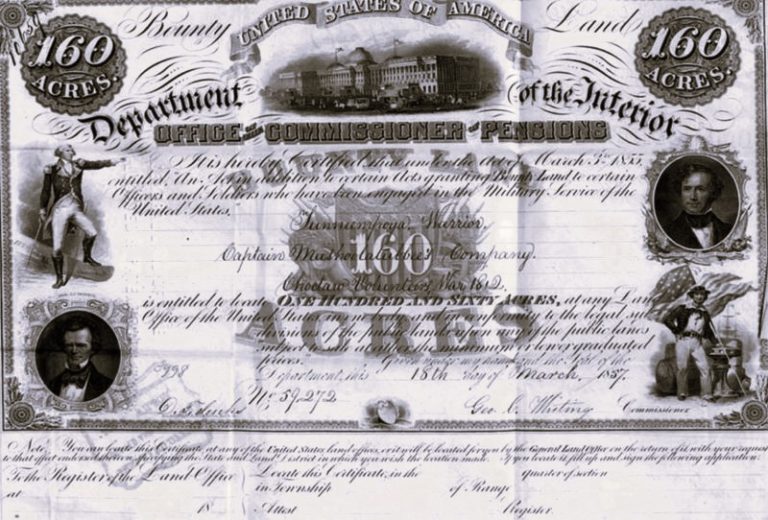 Bounty UNITED STATES OF AMERICA Land
160 ACRES. 160 ACRES.
Department of the Interior
OFFICE OF THE COMMISSIONER OF PENSIONS
It is hereby Certified that under the Act of March 3d 1855,
entitled "An Act in addition to certain Acts granting Bounty Land to certain
Officers and Soldiers who have been engaged in the Military Service of the
United States,
Warrior,
Captain Company.
Choctaw Volunteers, War 1812,
160
ACRES
is entitled to locate ONE HUNDRED AND SIXTY ACRES, at any Land
Office of the United States, in and in conformity to the legal sub
divisions of the public lands, upon any of the public lands
subject to sale at either the minimum or lower graduated
prices. Given under my hand, and the Seal of the
Department, this 18th day of March, 1857.
No. 59,272
Geo. C. Whiting Commissioner
Note. You can locate this Certificate at any of the United States land offices, or it will be located for you by the General Land Office on the return of it with your request
to that effect endorsed hereon, specifying the State and Land District in which you wish the location made. If you locate it, fill up and sign the following application:
To the Register of the Land Office Locate this Certificate, in the quarter of section
at in Township of Range
18 Attest Register.